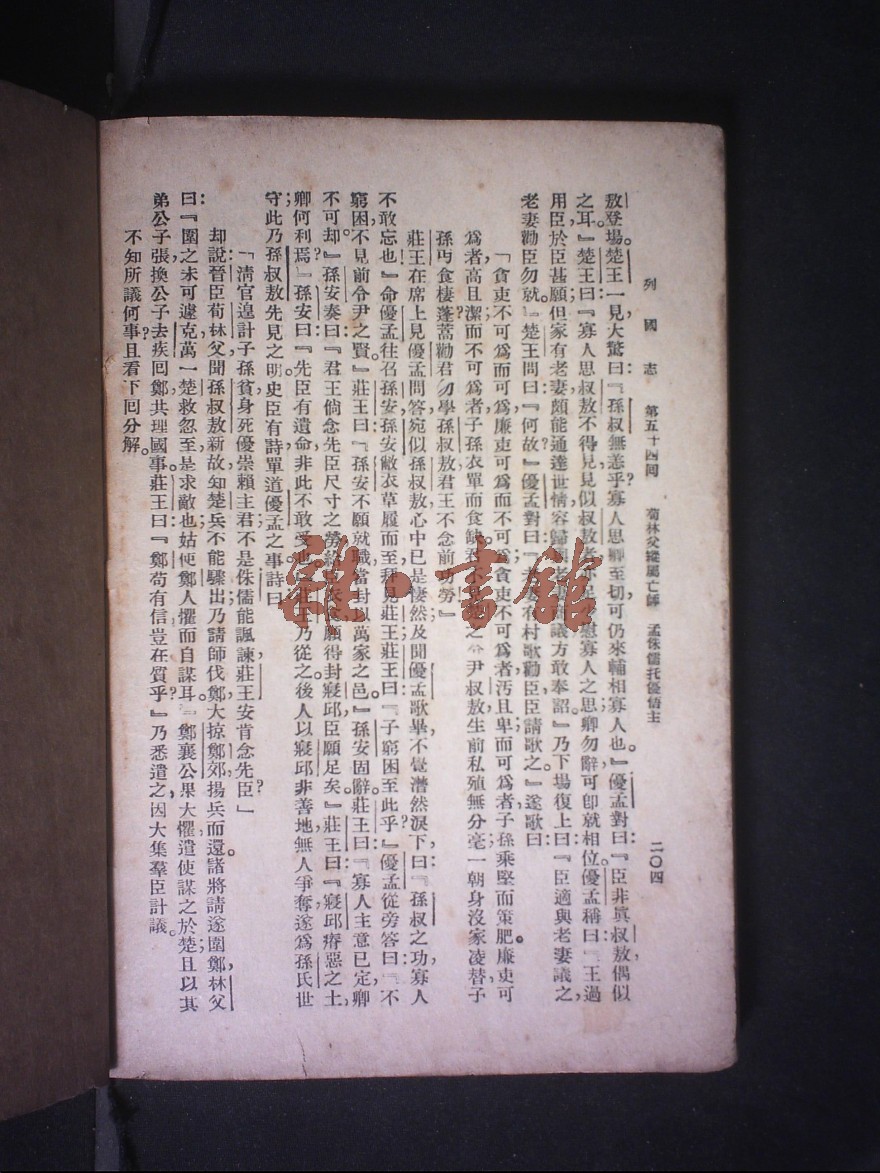 列國志 第五十四囘 荀林父縱屬亡師 孟侏儒托優悟主 二〇四
敖登場楚王一見大驚曰『孫叔無恙乎寡人思卿至切可仍來輔相寡人也。』優孟對曰『臣非眞叔敖偶似
之耳。』楚王曰『寡人思叔敖不得見見似叔敖者亦足慰寡人之思卿勿辭可卽就相位。』優孟稱曰『王過
用臣於臣甚願但家有老妻頗能通達世情容歸與老妻商議方敢奉詔。』乃下場復上曰『臣適與老妻議之,
老妻勸臣勿就。』楚王問曰『何故?』優孟對曰『老妻有村歌勸臣臣請歌之。』遂歌曰
「貪吏不可爲而可爲,廉吏可爲而不可爲;貪吏不可爲者汚且卑;而可爲者子孫乘堅而策肥。廉吏可
爲者,高且潔;而不可爲者子孫衣單而食缺君不見楚之令尹叔敖生前私殖無分毫一朝身沒家凌替子
孫丐食棲蓬蒿勸君勿學孫叔敖君王不念前功勞』
莊王在席上見優孟問答宛似孫叔敖心中已是悽然及聞優孟歌畢不覺潸然淚下曰『孫叔之功寡人
不敢忘也!』命優孟往召孫安孫安敝衣草履而至拜見莊王莊王曰『子窮困至此乎?』優孟從旁答曰『不
窮困不見前令尹之賢。』莊王曰『孫安不願就職當封以萬家之邑。』孫安固辭。莊王曰『寡人主意已定,卿
不可却。』孫安奏曰『君王倘念先臣尺寸之勞給臣衣食願得封寢邱臣願足矣。』莊王曰『寢邱瘠惡之土,
卿何利焉?』孫安曰『先臣有遺命,非此不敢受也。』莊王乃從之。後人以寢邱非善地,無人爭奪遂爲孫氏世
守;此乃孫叔敖先見之明史臣有詩單道優孟之事詩曰
「淸官遑計子孫貧身死優崇賴主君不是侏儒能諷諫莊王安肯念先臣?」
却說晉臣荀林父聞孫叔敖新故,知楚兵不能驟出乃請師伐鄭大掠鄭郊,揚兵而還。諸將請遂圍鄭,林父
曰『圍之未可遽克萬一楚救忽至是求敵也姑使鄭人懼而自謀耳。』鄭襄公果大懼,遣使謀之於楚;且以其
弟公子張換公子去疾囘鄭,共理國事。莊王曰『鄭苟有信豈在質乎?』乃悉遣之,因大集羣臣計議。
不知所議何事?且看下囘分解。
雜·書館